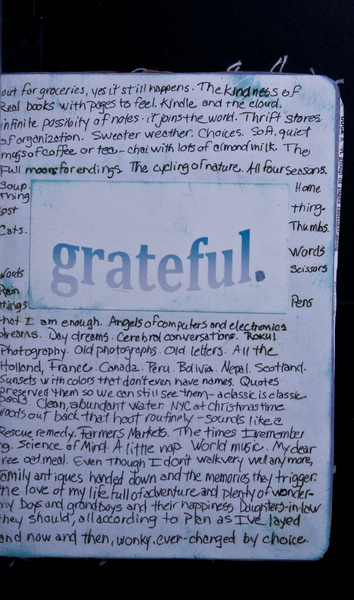 out for groceries, yes it still happens. The kindness of
Real books with pages to feel. Kindle and the cloud.
infinite possibility of notes. it joins the word. Thrift stores
of organization. Sweater weather. Choices. Soft, quiet
mugs of coffee or tea - chai with lots of almond milk. The
Full moons for endings. The cycling of nature. All four seasons.
Soup. Home
Thing thing.
post Thumbs.
Cats.
grateful.
Words
Words Scissors
Rain
things Pens
that I am enough. Angels of computers and electronics
dreams. Day dreams. Cerebral conversations. ROKU!
Photography. Old photographs. Old letters. All the
Holland, France. Canada. Peru. Bolivia. Nepal. Scotland.
Sunsets with colors that don't even have names. Quotes
preserved them so we can still see them - a classic is classic
Clean, abundant water. NYC at christmas time
woods out back that host routinely - sounds like a
Rescue remedy. Farmers Markets. The times I remember
Science of Mind. A little nap. World music. My dear
free oatmeal. Even though I don't walk very well anymore,
family antiques handed down and the memories they trigger.
the love of my life full of adventure and plenty of wonder-
my boys and grandboys and their happiness. Daughters-in-law
they should, all according to Plan as I've layed
and now and then, wonky. ever-changed by choice.